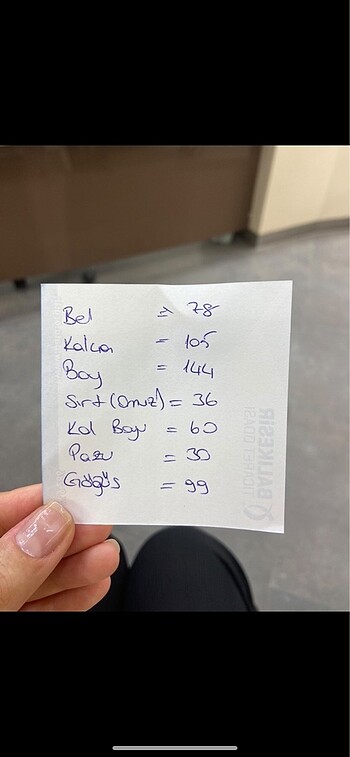 Bel = 78
Kalça = 105
Boy = 144
Sırt (Omuz) = 36
Kol Boyu = 60
Pazu = 30
Göğüs = 99
TİCARET ODASI
BALIKESİR